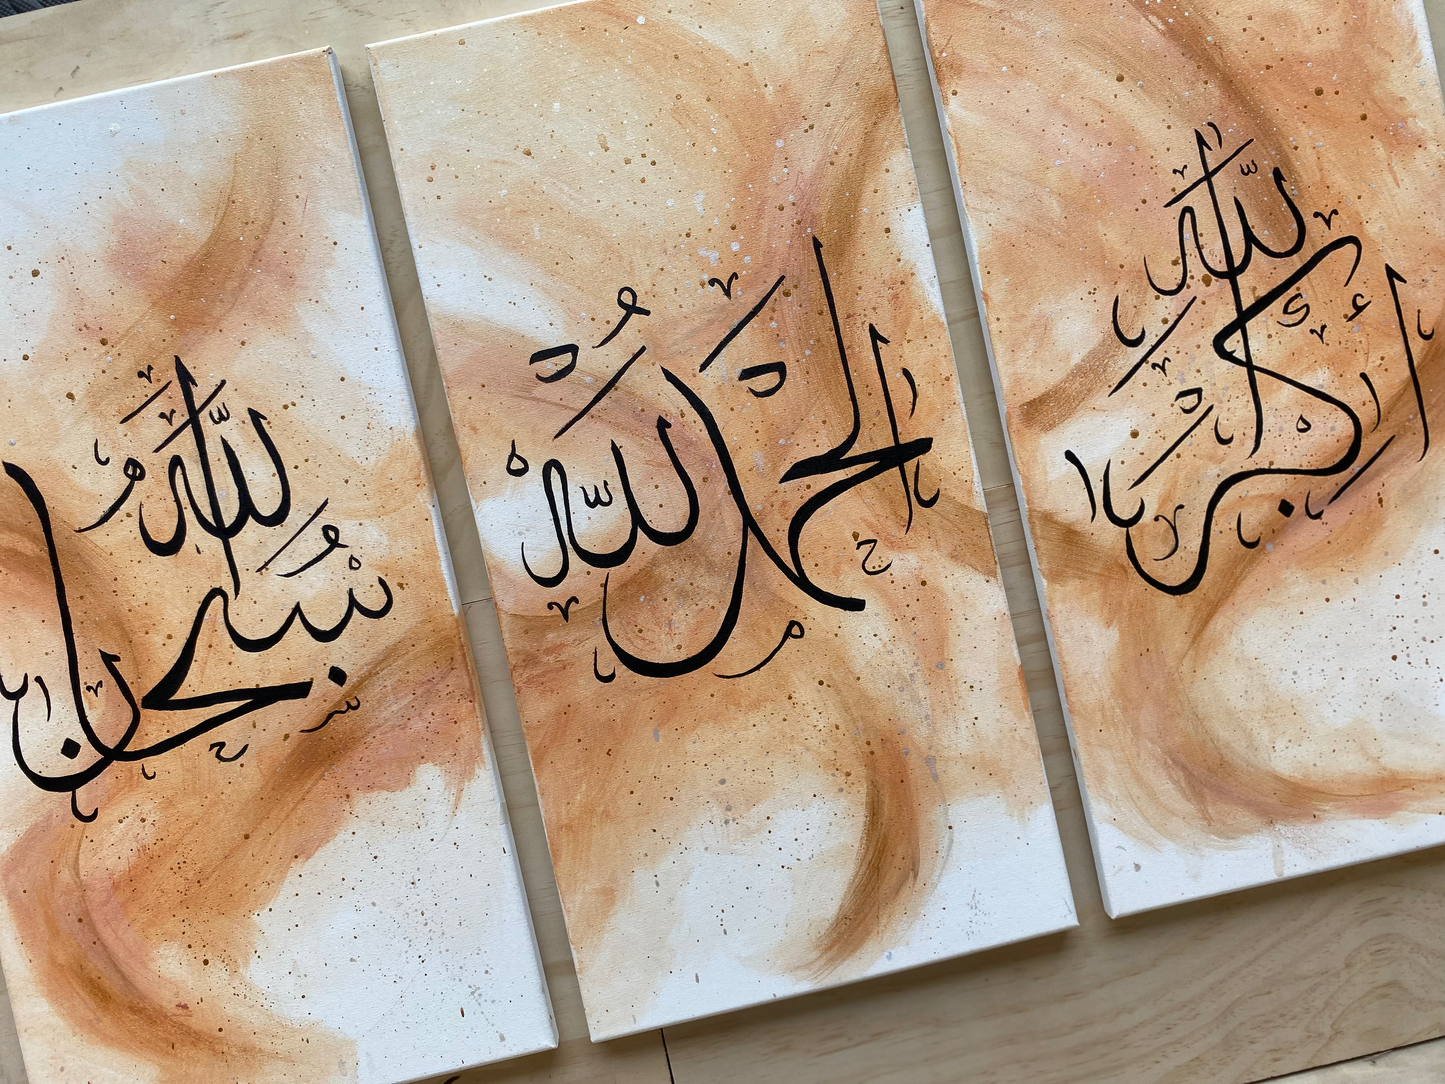 سُبحن الله
الحمد لله
الله أكبر